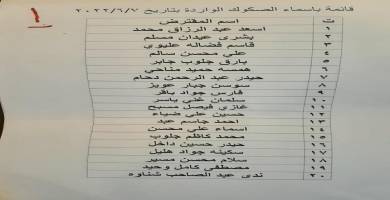 قائمة باسماء الصكوك الواردة بتاريخ ٢٠٢٢/٦/٧
ت اسم المقترض
١ اسعد عبد الرزاق محمد
٢ بشرى عبدان مسلم
٣ قاسم فضاله عليوي
٤ علي محسن سالم
٥ بارق جلوب جابر
٦ همسه حميد مناحي
٧ حيدر عبد الرحمن دحام
٨ سوسن جبار عويز
٩ فارس جواد باقر
١٠ سلمان غني ياسر
١١ غازي فيصل مسبح
١٢ حسين علي ضياء
١٣ احمد جاسم عبد
١٤ اسماء علي محسن
١٥ محمد كاظم جلوب
١٦ حيدر حسين داخل
١٧ سكينه جواد هليل
١٨ سلام محسن مسير
١٩ مصطفى كامل وحيد
٢٠ ندى عبد الصاحب شناوه